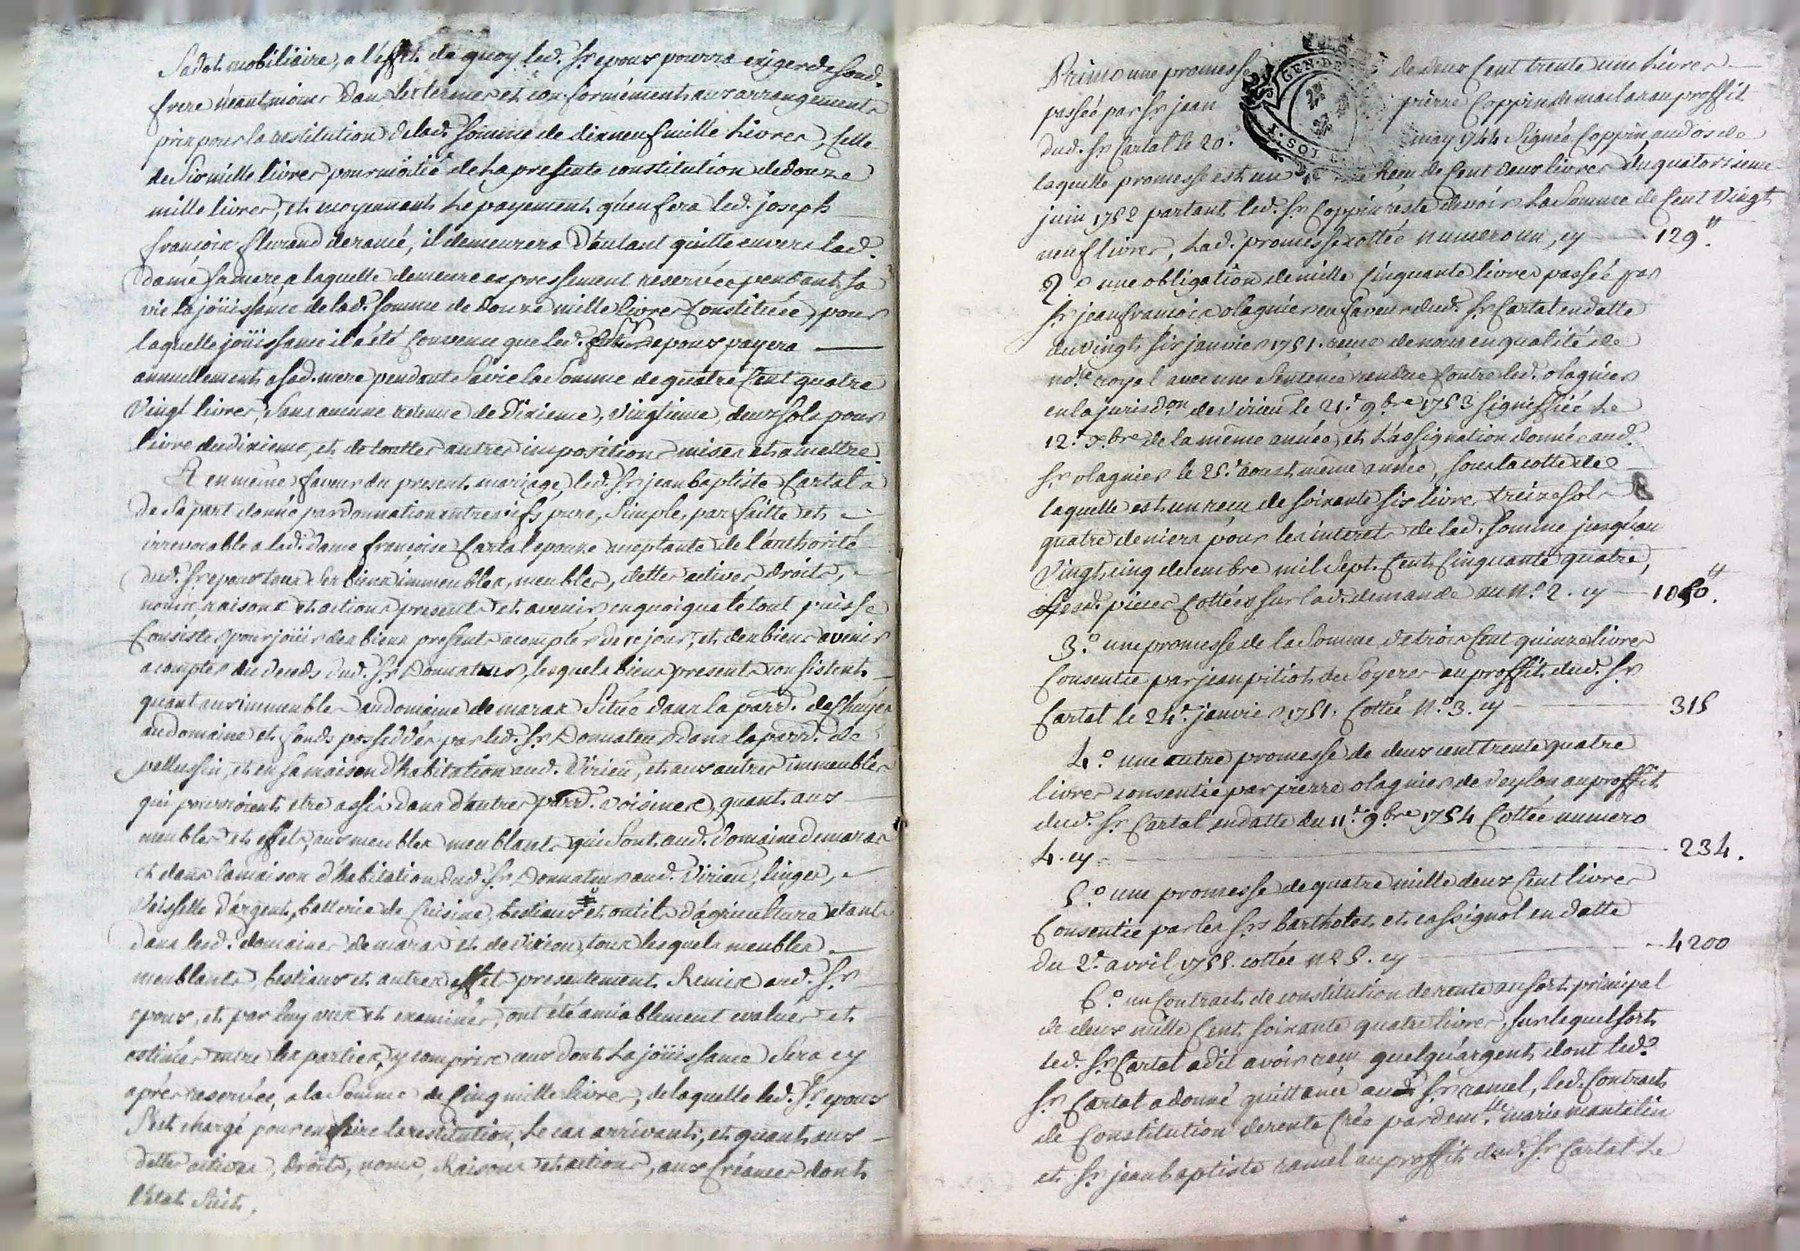 Sa dot mobiliaire, a l'effet de quoy led. Sr epoux pourra exiger de sond.
frere neantmoins dans les termes et conformément aux arrangements
pris pour la restitution de lad. somme de dix neuf mille Livres, celle
de Six mille livres pour moitié de la presente constitution de douze
mille livres, et moyennant le payement qu'en fera led. joseph
françois fleurand deramé, il demeurera d'autant quitte envers lad.
dame sa mere a laquelle demeure expressement reservée pendant sa
vie la joüissance de lad. somme de douze mille livres Constituée, pour
laquelle joüissance il a été Convenu que led. Sr epoux payera
annuellement a sad. mere pendant sa vie la Somme de quatre Cent quatre
Vingt livres, Sans aucune retenue de Dixieme, Vingtieme, deux sols pour
livre du dixieme, et de touttes autres impositions mises et a mettre.
Et en même faveur du present mariage, led. Sr jean baptiste Cartal a
de Sa part donné par donnation entre vifs pure, Simple, parfaitte et
irrevocable a lad. dame françoise Cartal epouze acceptante de l'authorité
dud. Sr epoux tous Ses biens immeubles, meubles, dettes actives droits,
noms raisons et actions presents et avenir en quoi que le tout puisse
Consister pour joüir des biens presents a compter de ce jour, et des biens avenir
a compter du deceds dud. Sr Donnateur, lesquels biens presents consistent
quant aux immeubles au domaine de maras Situé dans la parr. de Chuyer
au domaine et fonds possedés par led. Sr Donnateur dans la parr. de
pellussin, et en sa maison d'habitation aud. Virieu, et aux autres immeubles
qui pourroient etre assis dans d'autres parr. voisines, quant aux
meubles et effets, aux meubles meublants qui Sont aud. Domaine de maras
et dans la maison d'habitation dud. Sr Donnateur aud. Virieu, linges,
Vaisselle d'argent, batterie de Cuisine, bestiaux et outils d'agriculture etant
dans lesd. domaines de maras et de Virieu, tous lesquels meubles
meublants, bestiaux et autres effets presentement Remis aud. Sr
epoux, et par luy vus et examinés, ont été amiablement evalués et
estimés entre les parties, y compris ceux dont la joüissance Sera cy
après reservée, a la Somme de Cinq mille livres, de laquelle led. Sr epoux
S'est chargé pour en faire la restitution, le cas arrivant, et quant aux
dettes actives, droits, noms, Raisons et actions, aux Créances dont
l'etat Suit,
Primo une promesse de deux Cent trente une Livres
passée par Sr jean pierre Coppin de maclas au proffit
dud. Sr Cartal le 20. may 1744 Signée Coppin au dos de
laquelle promesse est un Reçu de Cent deux livres du quatorzieme
juin 1752 partant led. Sr Coppin reste devoir la Somme de Cent Vingt
neuf livres, Lad. promesse cottée numero un, cy 129"
2.o une obligation de mille Cinquante livres passée par
Sr jean françois olagnier en faveur dud. Sr Cartal en datte
du vingt six janvier 1751. reçue de nous en qualité de
nore royal avec une Sentence rendue Contre led. olagnier
en la jurisdon de Virieu le 21.e 9bre 1753 Signiffiée le
12.e xbre de la même année, et L'assignation donnée aud.
Sr olagnier le 25.e aoust même année, Sous la cotte de
laquelle est un reçu de Soixante six livre treize sols
quatre deniers pour les interets de lad. somme jusqu'au
Vingt cinq decembre mil Sept Cent Cinquante quatre,
Lesd. pieces Cottées sur lad. demande au N.o 2. cy 1050".
3.o une promesse de la Somme de trois Cent quinze livres
Consentie par jean pitiot de Soyeres au proffit dud. Sr
Cartal le 24.e janvier 1751. Cottée N.o 3. cy 315
4.o une autre promesse de deux cent trente quatre
livres consentie par pierre olagnier de Veylon au proffit
dud. Sr Cartal en datte du 11.e 9bre 1754 Cottée numero
4. cy 234.
5.o une promesse de quatre mille deux Cent livres
Consentie par les Srs bartholet et cassignol en datte
du 2.e avril 1755. cottée n.o 5. cy 4200
6.o un Contract de constitution de rente au sort principal
de deux mille Cent Soixante quatre livres, sur lequel sort
led. Sr Cartal a dit avoir reçu quelqu'argent dont led.
Sr Cartal a donné quittance aud. Sr ramel, led. Contract
de Constitution de rente Crée par demlle marie mantelin
et Sr jean baptiste ramel au proffit dud. Sr Cartal le